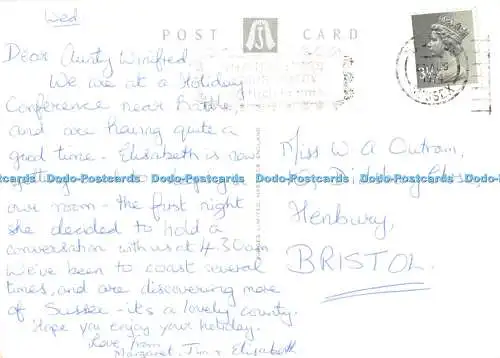 Wed
POST CARD
Dear Aunty Winifred,
We are at a Holiday
Conference near Battle,
and are having quite a
good time. Elisabeth is now
our room - the first night
she decided to hold a
conversation with us at 4.30am
We've been to coast several
times, and are discovering more
of Sussex - it's a lovely county.
Hope you enjoy your holiday.
Love from
Margaret, Jim & Elisabeth
Miss W A Outram,
Henbury,
BRISTOL.
Dodo-Postcards Dodo-Postcards Dodo-Postcards Dodo-Postcards